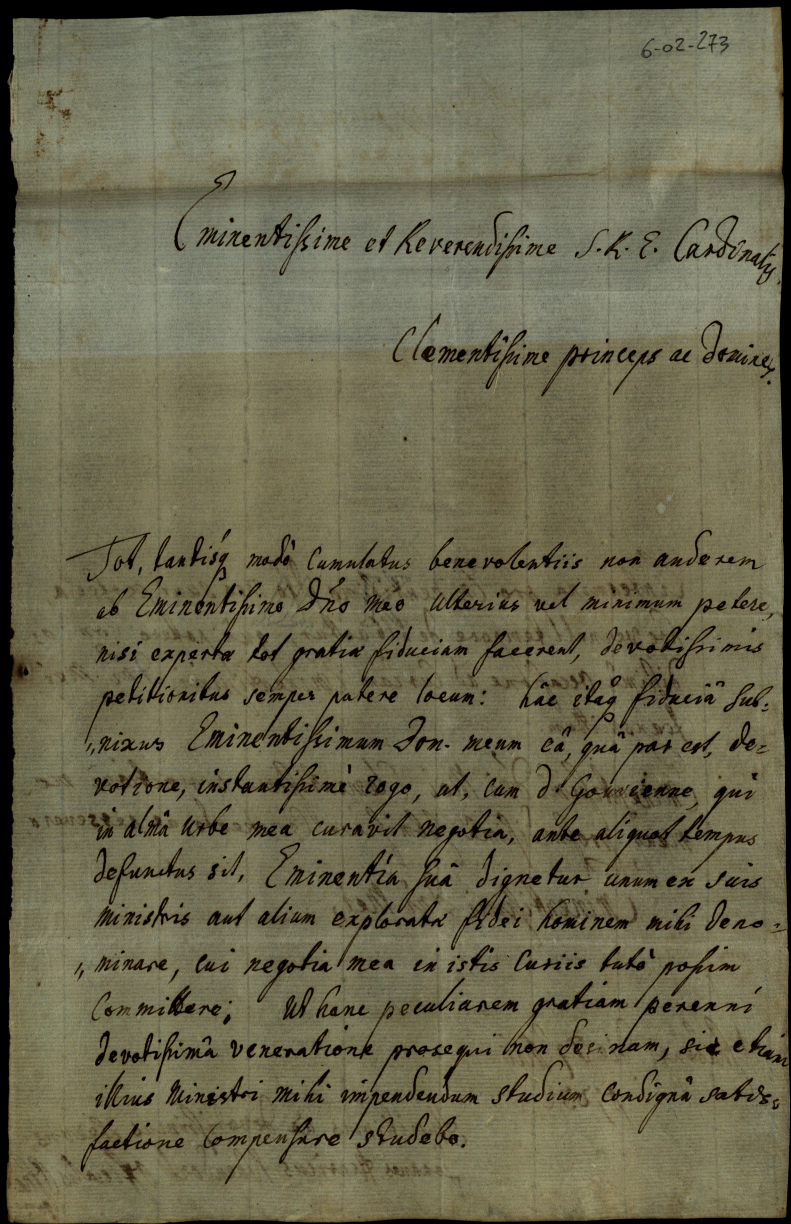 6-02-273
Eminentissime et Reverendissime S. R. E. Cardinalis,
Clementissime princeps ac Domine,
Tot, tantisq modò cumulatus benevolentiis non auderem
ab Eminentissimo Dño meo ulterius vel minimum petere,
nisi expertæ tot gratiæ fiduciam facerent, devotissimis
petitionibus semper patere locum: hâc itaq fiduciâ sub=
„nixus Eminentissimum Dom. meum eâ, quâ par est, de=
votione, instantissimè rogo, ut, cum d. Gouvienne, qui
in almâ Urbe mea curavit negotia, ante aliquot tempus
defunctus sit, Eminentia suâ dignetur unum ex suis
ministris aut alium exploratæ fidei hominem mihi deno=
„minare, cui negotia mea in istis Curiis tutò possim
Committere; Ut hanc peculiarem gratiam perenni
devotissimâ veneratione prosequi non desinam, sic etiam
illius Ministri mihi impendendum studium condignâ satis=
factione compensare studebo.